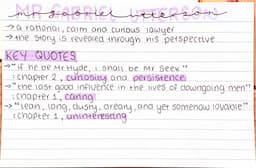 MR GABRIEL UTTERSON
→ a rational, calm and curious lawyer
→ the story is revealed through his perspective
KEY QUOTES
→ "if he be Mr Hyde, i shall be Mr Seek"
: chapter 2, curiosity and persistence
→ "the last good influence in the lives of downgoing men"
: chapter 1, caring
→ "lean, long, dusty, dreary, and yet somehow lovable"
: chapter 1, uninteresting